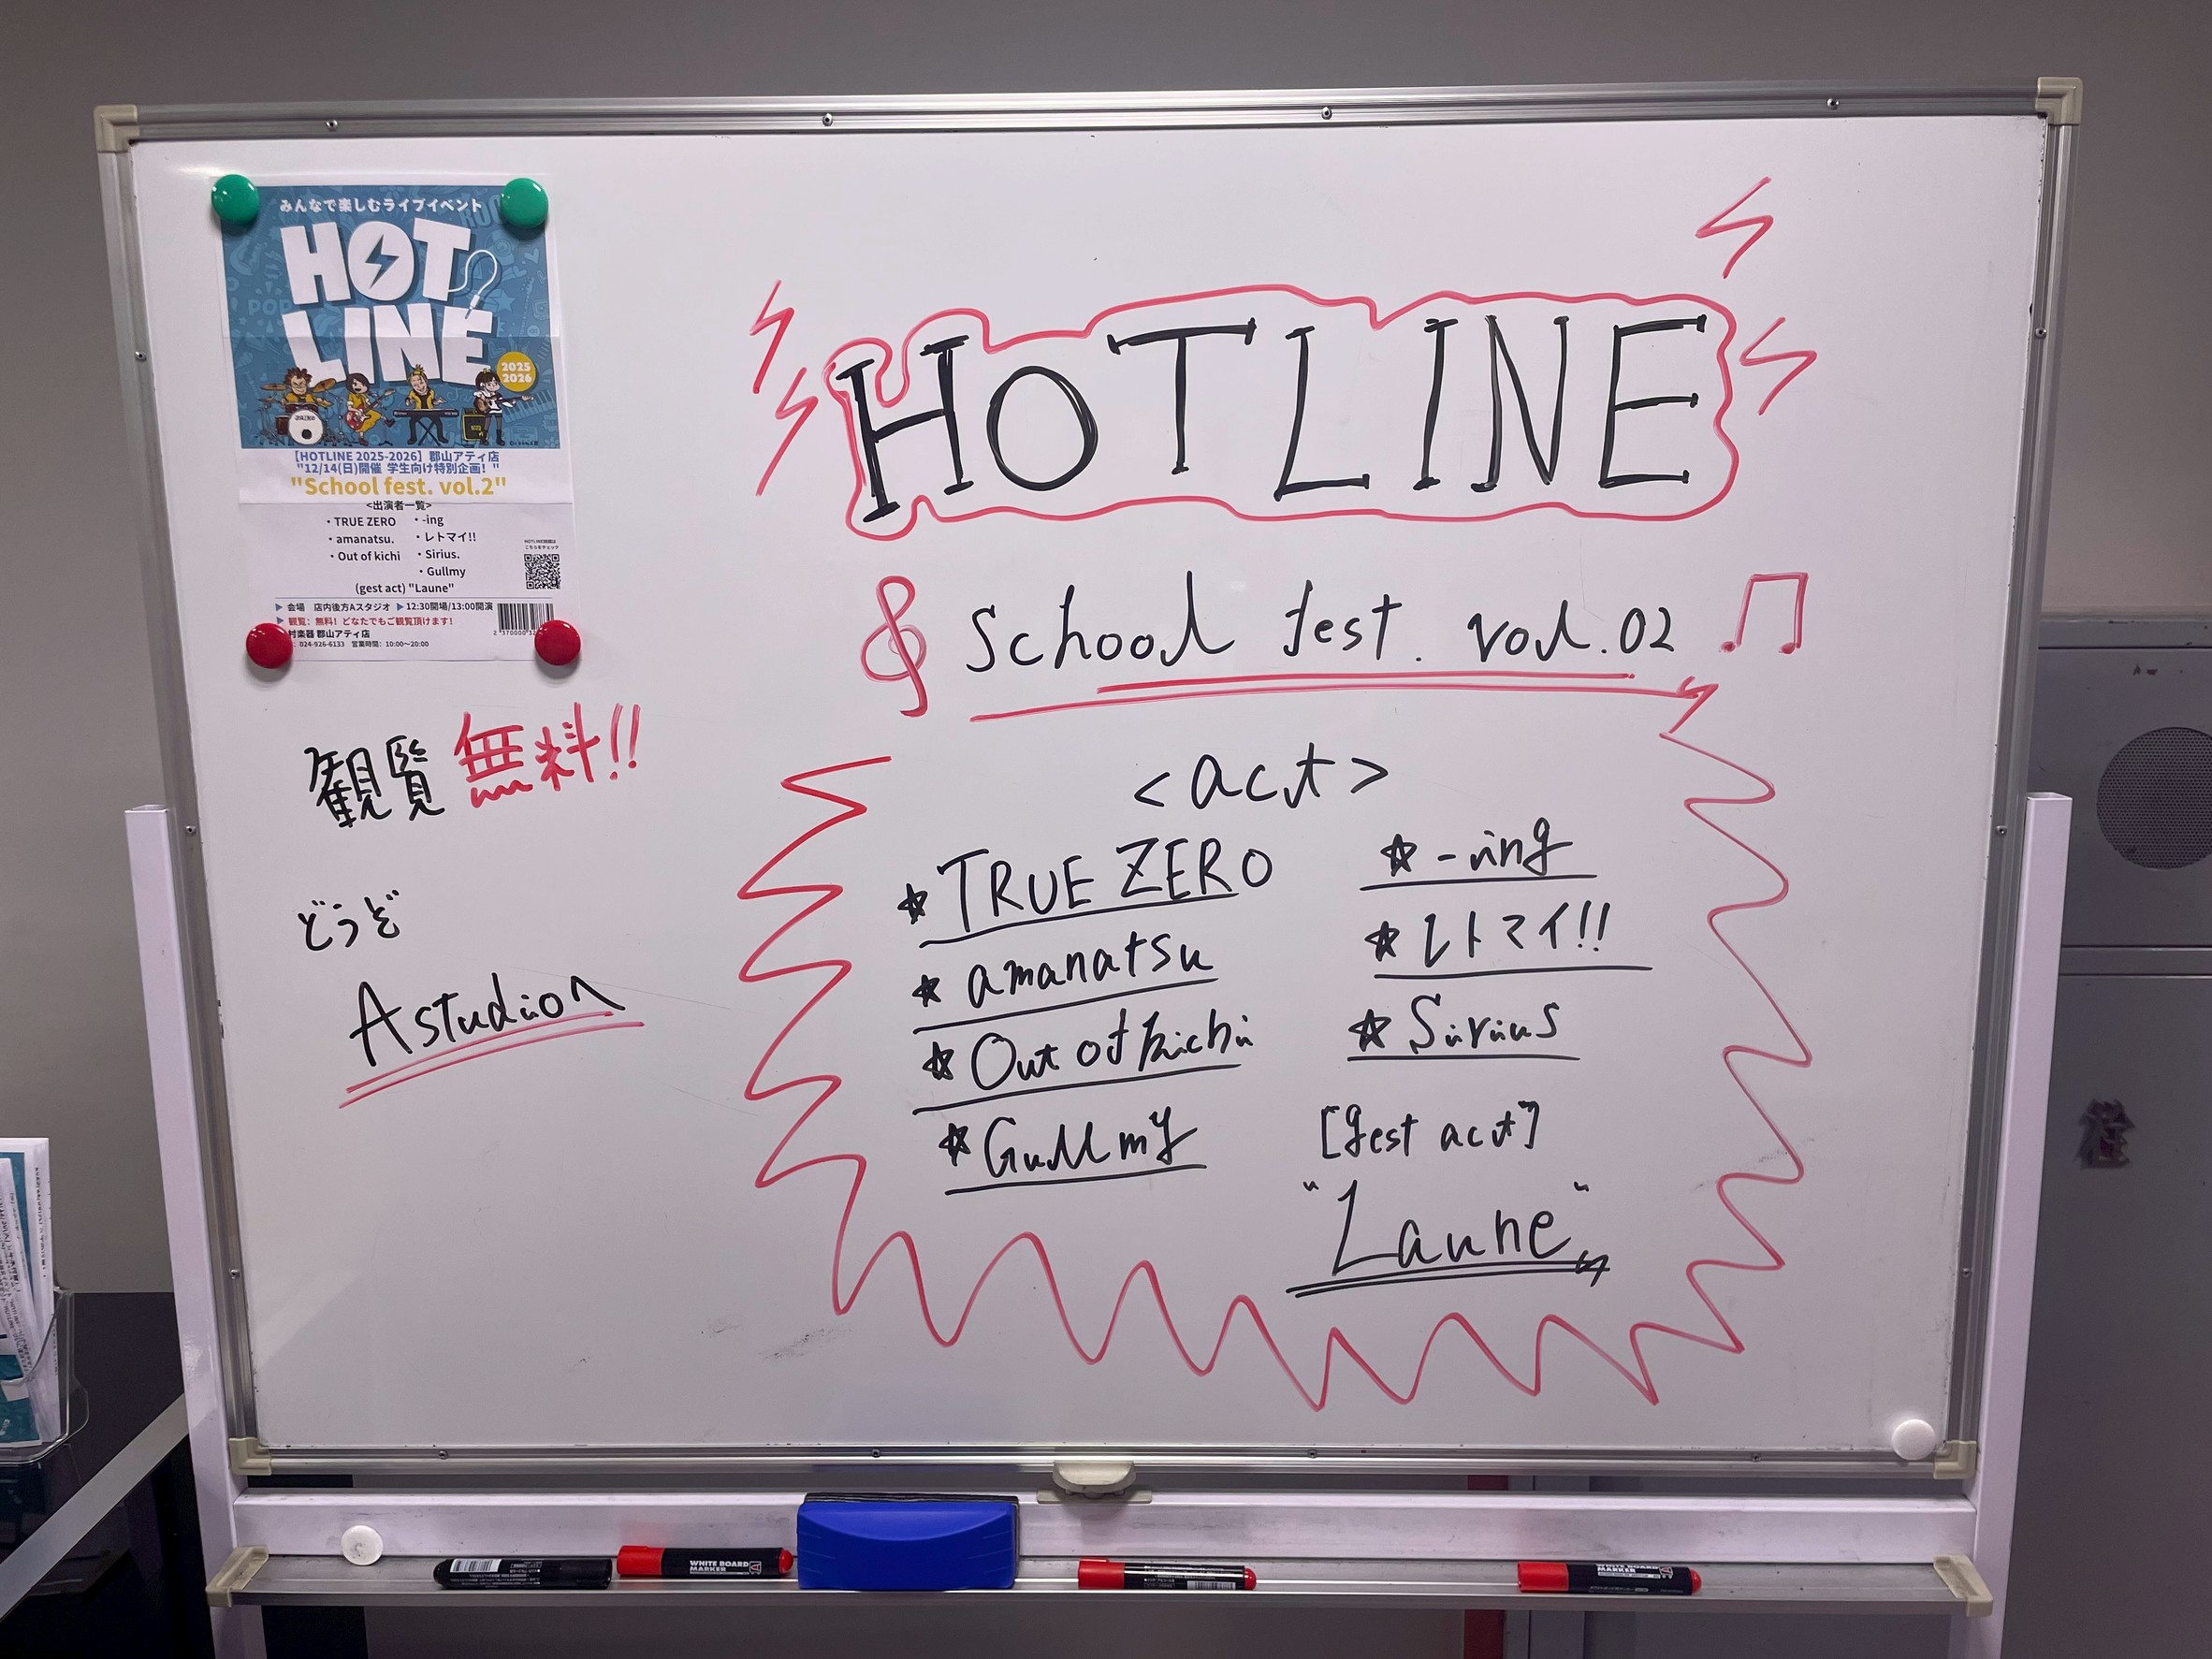 みんなで楽しむライブイベント
HOT
LINE
2025
2026
【HOTLINE 2025-2026】郡山アティ店
"12/14(日)開催 学生向け特別企画！"
"School fest. vol.2"
<出演者一覧>
・TRUE ZERO ・-ing
・amanatsu. ・レトマイ!!
・Out of kichi ・Sirius.
・Gullmy
(gest act) "Laune"
▶ 会場 店内後方Aスタジオ ▶ 12:30開場/13:00開演
▶ 観覧：無料！どなたでもご観覧頂けます！
村楽器 郡山アティ店
024-926-6133 営業時間：10:00～20:00
観覧無料!!
どうぞ
Astudioへ
HOTLINE
School fest. vol.02
<act>
☆TRUE ZERO ☆-ing
☆amanatsu ☆レトマイ!!
☆Out of kichi ☆Sirius
☆Gullmy [gest act]
"Laune"
WHITE BOARD
MARKER
WHITE BOARD
MARKER